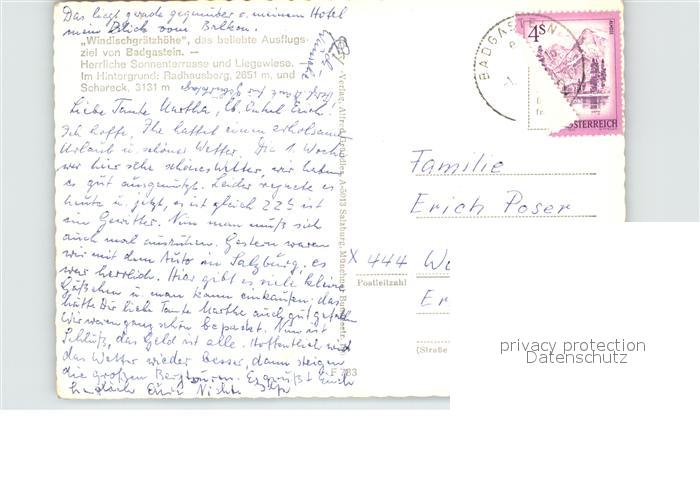 Das liegt gerade gegenüber v. meinem Hotel
mein Blick vom Balkon.
„Windischgrätzhöhe", das beliebte Ausflugs-
ziel von Badgastein. —
Herrliche Sonnenterrasse und Liegewiese. —
Im Hintergrund: Radhausberg, 2651 m, und
Schareck, 3131 m
Liebe Tante Martha, lb. Onkel Erich!
Ich hoffe, Ihr hattet einen erholsamen
Urlaub u. schönes Wetter. Die 1. Woche
war hier sehr schönes Wetter, wir haben
es gut ausgenützt. Leider regnete es
heute u. jetzt, es ist gleich 22 h ist
ein Gewitter. Nun man muß sich
auch mal ausruhen. Gestern waren
wir mit dem Auto in Salzburg, es
war herrlich. Hier gibt es viele kleine
Gäßchen u. man kann einkaufen, das
hätte Dir liebe Tante Martha auch gut gefallen
Wir waren ganz schön bepackt. Nun ist
Schluß, das Geld ist alle. Hoffentlich wird
das Wetter wieder besser, dann steigen
die großen Bergtouren. Es grüßt Euch
herzlich Eure Nichte
-Verlag, Alfred A-5013 Salzburg, Münchner
F 783
BADGASTEIN
4S
ÖSTERREICH
Familie
Erich Poser
X 444 Wo
Postleitzahl
Er
(Straße
privacy protection
Datenschutz